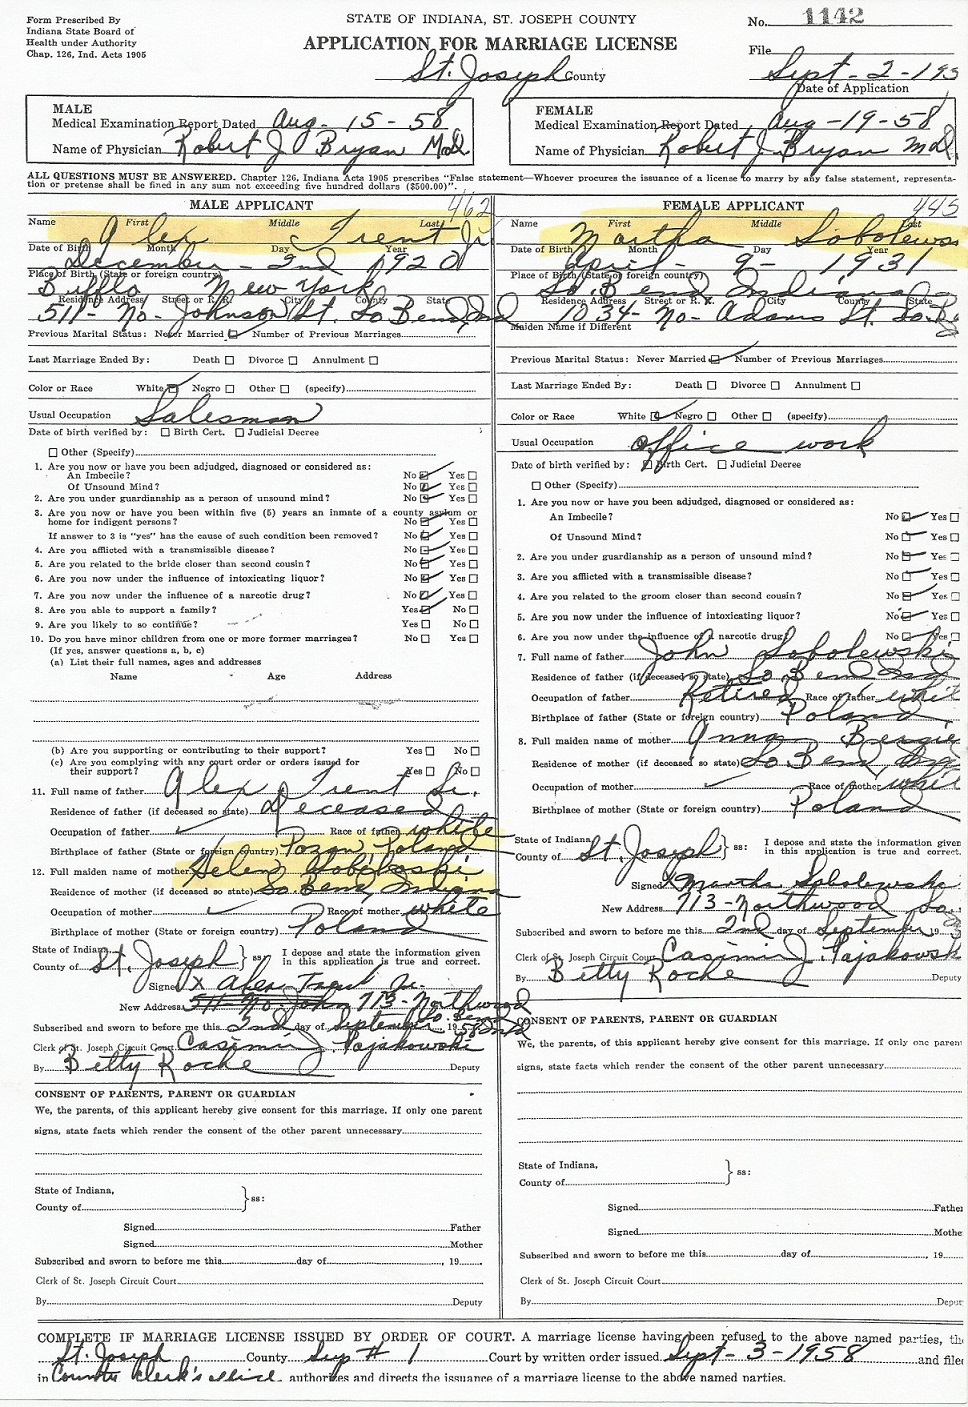 Form Prescribed By
Indiana State Board of
Health under Authority
Chap. 126, Ind. Acts 1905
STATE OF INDIANA, ST. JOSEPH COUNTY
APPLICATION FOR MARRIAGE LICENSE
St. Joseph County
No. 1142
File
Sept - 2 - 195
Date of Application
MALE
Medical Examination Report Dated Aug - 15 - 58
Name of Physician Robert J Bryan M.D.
FEMALE
Medical Examination Report Dated Aug - 19 - 58
Name of Physician Robert J. Bryan M.D.
ALL QUESTIONS MUST BE ANSWERED. Chapter 126, Indiana Acts 1905 prescribes "False statement—Whoever procures the issuance of a license to marry by any false statement, representa-
tion or pretense shall be fined in any sum not exceeding five hundred dollars ($500.00)".
MALE APPLICANT 462
Name First Middle Last
Alex Trent Jr.
Date of Birth Month Day Year
December - 2nd 1920
Place of Birth (State or foreign country)
Bufflo New York
Residence Address Street or R. R. City County State
511 - No - Johnson St. So Bend Ind
Previous Marital Status: Never Married Number of Previous Marriages
Last Marriage Ended By: Death Divorce Annulment
Color or Race White Negro Other (specify)
Usual Occupation Salesman
Date of birth verified by: Birth Cert. Judicial Decree
Other (Specify)
1. Are you now or have you been adjudged, diagnosed or considered as:
An Imbecile? No Yes
Of Unsound Mind? No Yes
2. Are you under guardianship as a person of unsound mind? No Yes
3. Are you now or have you been within five (5) years an inmate of a county asylum or
home for indigent persons? No Yes
If answer to 3 is "yes" has the cause of such condition been removed? No Yes
4. Are you afflicted with a transmissible disease? No Yes
5. Are you related to the bride closer than second cousin? No Yes
6. Are you now under the influence of intoxicating liquor? No Yes
7. Are you now under the influence of a narcotic drug? No Yes
8. Are you able to support a family? Yes No
9. Are you likely to so continue? Yes No
10. Do you have minor children from one or more former marriages? No Yes
(If yes, answer questions a, b, c)
(a) List their full names, ages and addresses
Name Age Address
(b) Are you supporting or contributing to their support? Yes No
(c) Are you complying with any court order or orders issued for
their support? Yes No
11. Full name of father Alex Trent Sr.
Residence of father (if deceased so state) Deceased
Occupation of father Race of father white
Birthplace of father (State or foreign country) Pozan Poland
12. Full maiden name of mother Helen
Residence of mother (if deceased so state) So Bend, Indiana
Occupation of mother Race of mother white
Birthplace of mother (State or foreign country) Poland
State of Indiana
County of St. Joseph ss: I depose and state the information given
in this application is true and correct.
Signed X Alex Trent Jr.
New Address 511 No. John 713 - Northwood
So. Bend Ind
Subscribed and sworn to before me this 2nd day of September 19 58
Clerk of St. Joseph Circuit Court Casimir J. Pajakowski
By Betty Roche Deputy
CONSENT OF PARENTS, PARENT OR GUARDIAN
We, the parents, of this applicant hereby give consent for this marriage. If only one parent
signs, state facts which render the consent of the other parent unnecessary
State of Indiana,
County of ss:
Signed Father
Signed Mother
Subscribed and sworn to before me this day of , 19
Clerk of St. Joseph Circuit Court
By Deputy
FEMALE APPLICANT 445
Name First Middle Last
Martha Sobolews
Date of Birth Month Day Year
April - 9 - 1931
Place of Birth (State or foreign country)
So. Bend Indiana
Residence Address Street or R. R. City County State
1034 - No - Adams St. So. B
Maiden Name if Different
Previous Marital Status: Never Married Number of Previous Marriages
Last Marriage Ended By: Death Divorce Annulment
Color or Race White Negro Other (specify)
Usual Occupation office work
Date of birth verified by: Birth Cert. Judicial Decree
Other (Specify)
1. Are you now or have you been adjudged, diagnosed or considered as:
An Imbecile? No Yes
Of Unsound Mind? No Yes
2. Are you under guardianship as a person of unsound mind? No Yes
3. Are you afflicted with a transmissible disease? No Yes
4. Are you related to the groom closer than second cousin? No Yes
5. Are you now under the influence of intoxicating liquor? No Yes
6. Are you now under the influence of a narcotic drug No Yes
7. Full name of father John Sobolewski
Residence of father (if deceased so state) So Bend Ind
Occupation of father Retired Race of father whit
Birthplace of father (State or foreign country) Poland
8. Full maiden name of mother Anna
Residence of mother (if deceased so state) So Bend Ind
Occupation of mother Race of mother whit
Birthplace of mother (State or foreign country) Poland
State of Indiana
County of St. Joseph ss: I depose and state the information given
in this application is true and correct.
Signed X Martha Sobolewski
New Address 713 - Northwood So.
Subscribed and sworn to before me this 2nd day of September 19
Clerk of St. Joseph Circuit Court Casimir J. Pajakowsk
By Betty Roche Deputy
CONSENT OF PARENTS, PARENT OR GUARDIAN
We, the parents, of this applicant hereby give consent for this marriage. If only one paren
signs, state facts which render the consent of the other parent unnecessary
State of Indiana,
County of ss:
Signed Father
Signed Mothe
Subscribed and sworn to before me this day of , 19
Clerk of St. Joseph Circuit Court
By Deput
COMPLETE IF MARRIAGE LICENSE ISSUED BY ORDER OF COURT. A marriage license having been refused to the above named parties, the
St. Joseph County Sup # 1 Court by written order issued Sept - 3 - 1958 and filed
in County Clerk's office authorizes and directs the issuance of a marriage license to the above named parties.